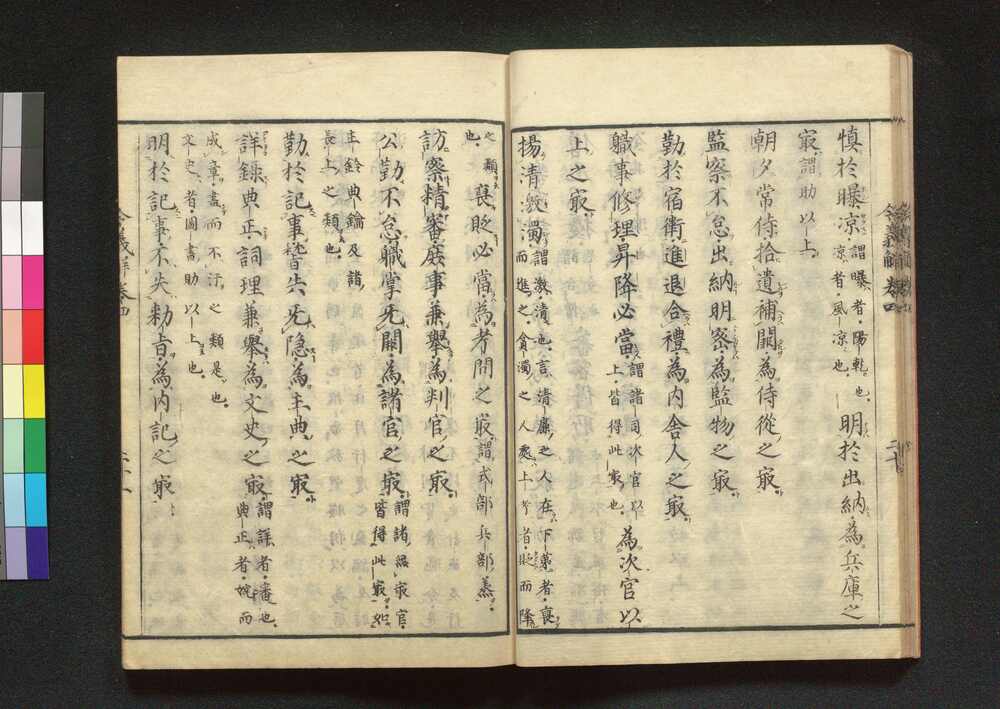 慎於曝凉謂曝者陽乾也凉者風凉也明於出納為兵庫之
㝡謂助以上
朝夕常侍拾遺補闕為侍從之㝡
監察不怠出納明密為監物之㝡
勤於宿衛進退合禮為内舍人之㝡
職事修理昇降必當謂諸司次官以上皆得此㝡也為次官以
上之㝡
揚清激濁謂激清也言清廉之人在下第者褒而進之貪濁之人處上等者貶而降
之類也褒貶必當為考問之㝡謂式部兵部丞
訪察精審庶事兼舉為判官之㝡
公勤不怠職掌无闕為諸官之㝡謂諸㝡官皆得此㝡
年鈴典鑰及諸長上之類也
勤於記事皆失无隐為主典之㝡
詳録典正詞理兼舉為文史之㝡謂詳者審也典正者婉而
成章盡而不汙之類是也文史者圖書助以上也
明於記事不失勅旨為内記之㝡
令義解 卷四
二十
令義解卷四